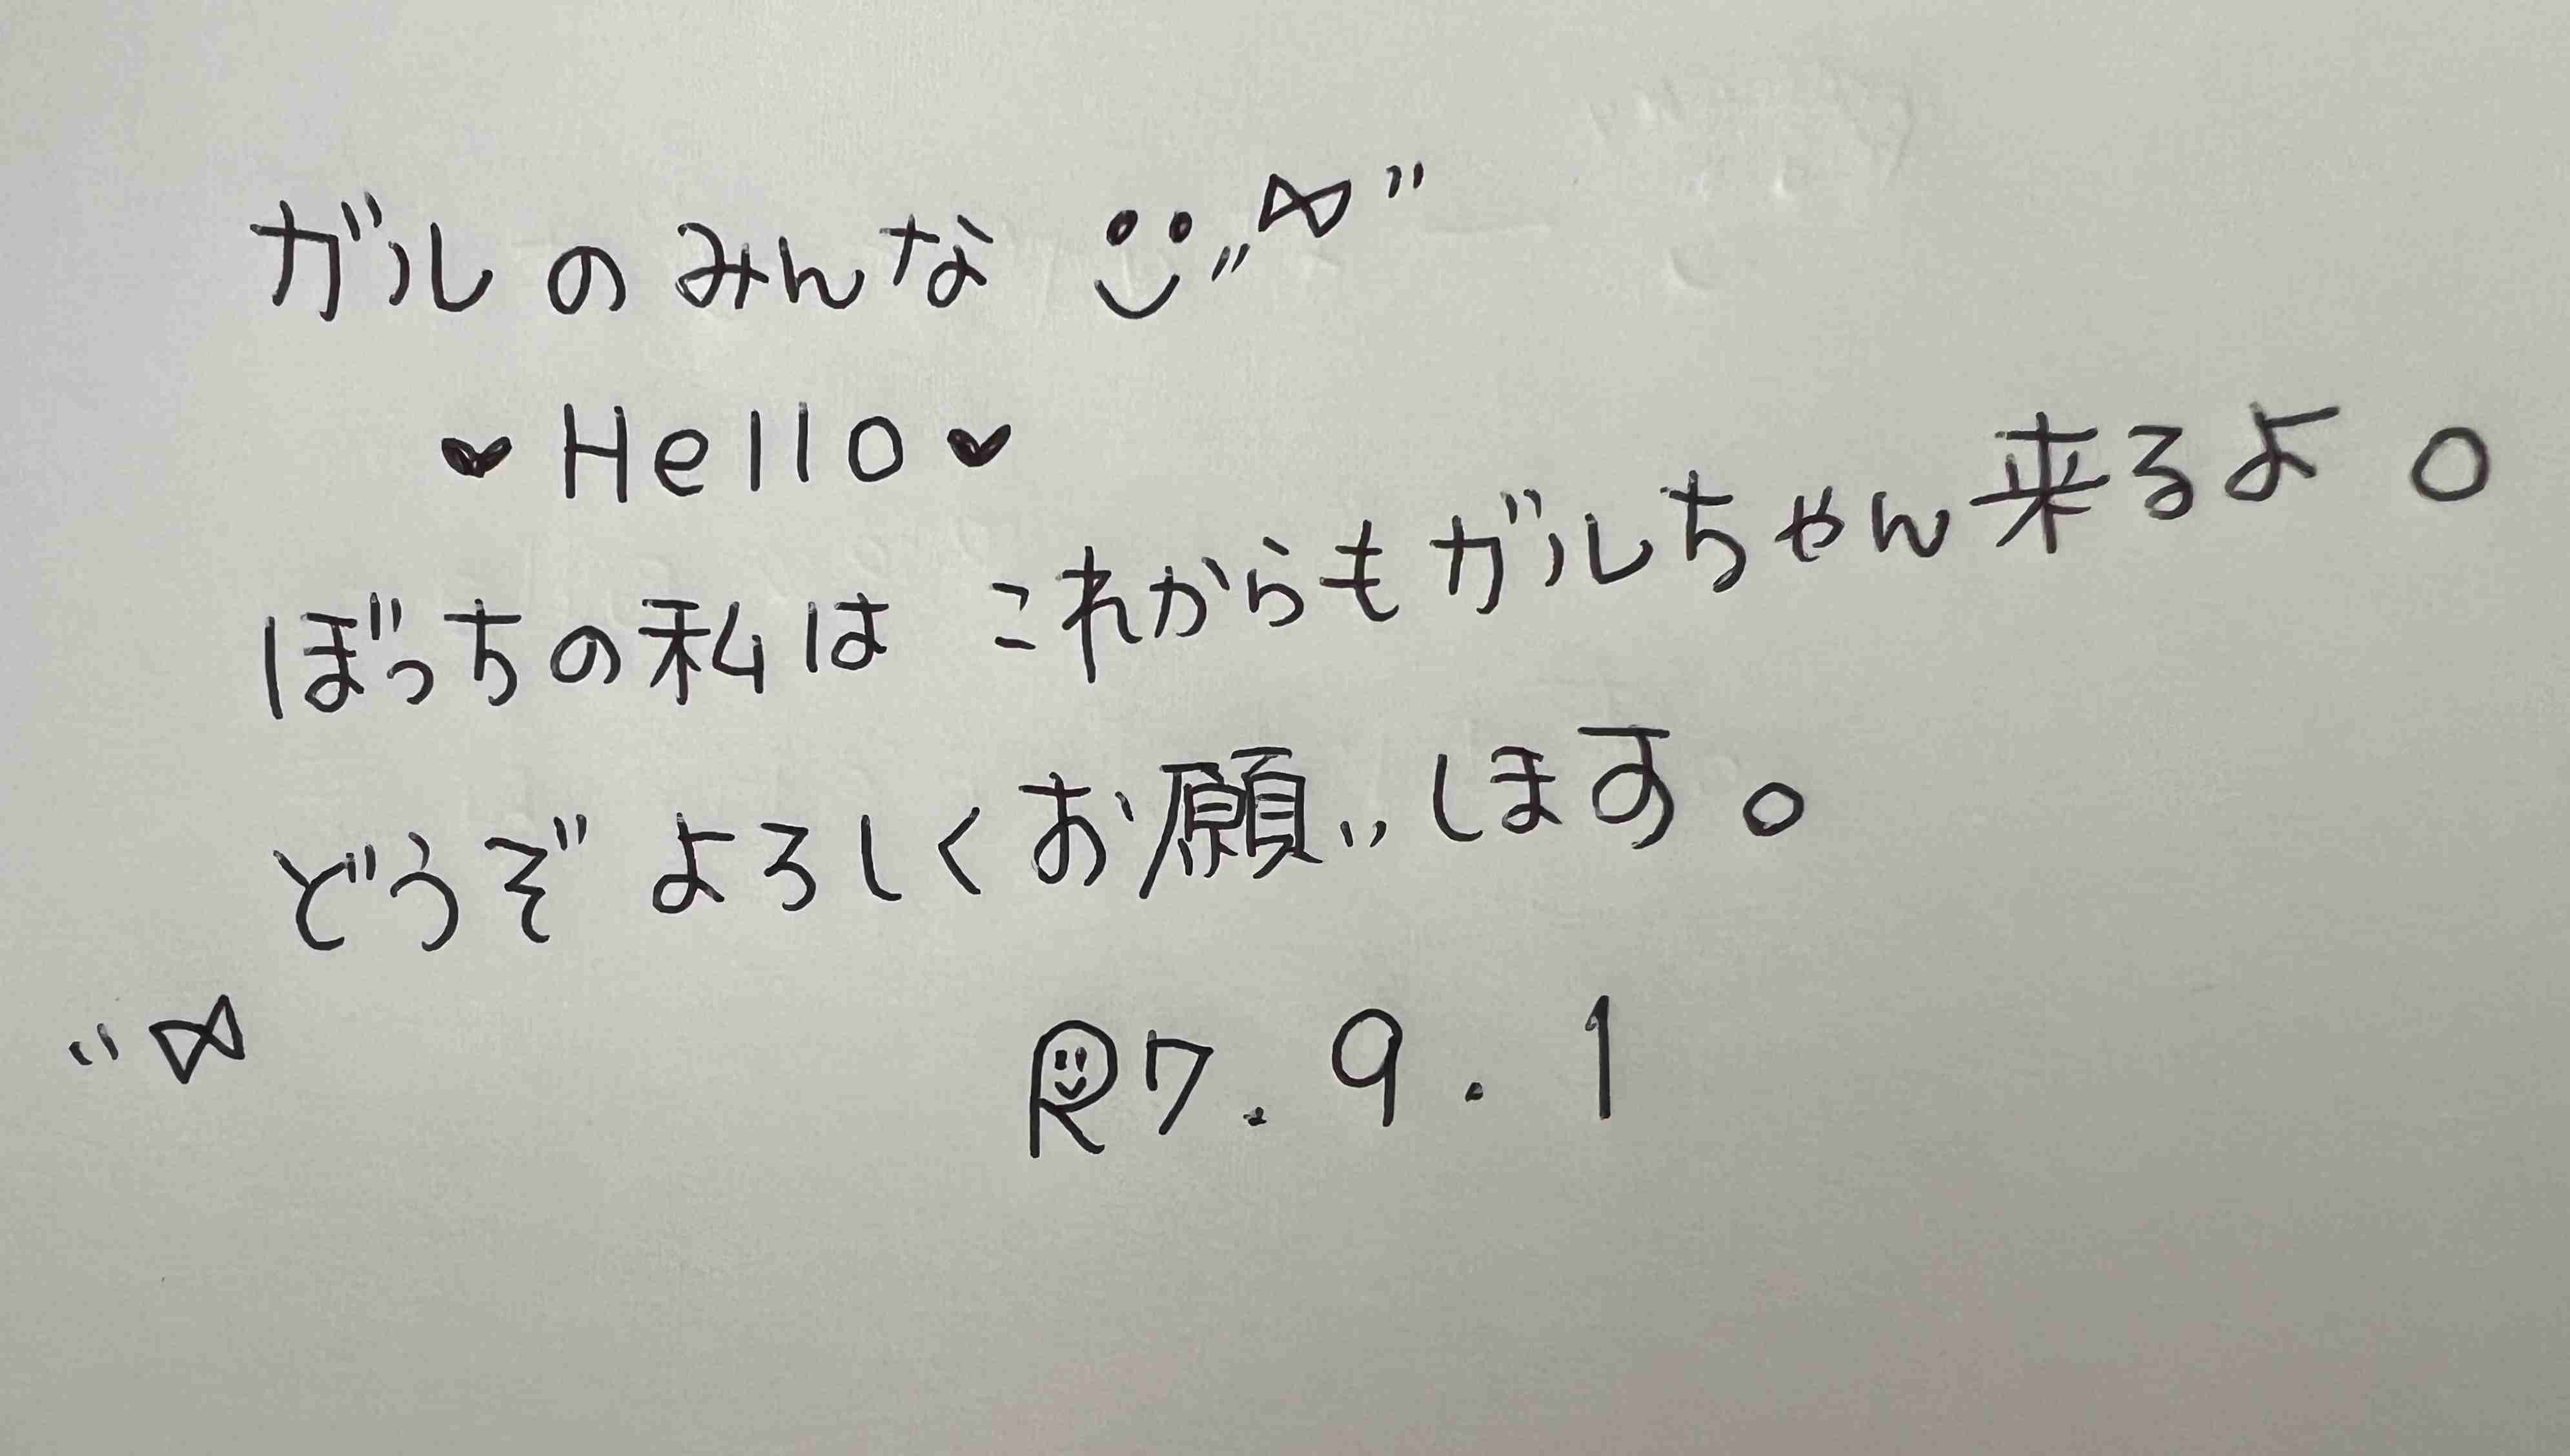 ガルのみんな
♥Hello♥
ぼっちの私は これからもガルちゃん来るよ。
どうぞ よろしくお願いします。
R7.9.1